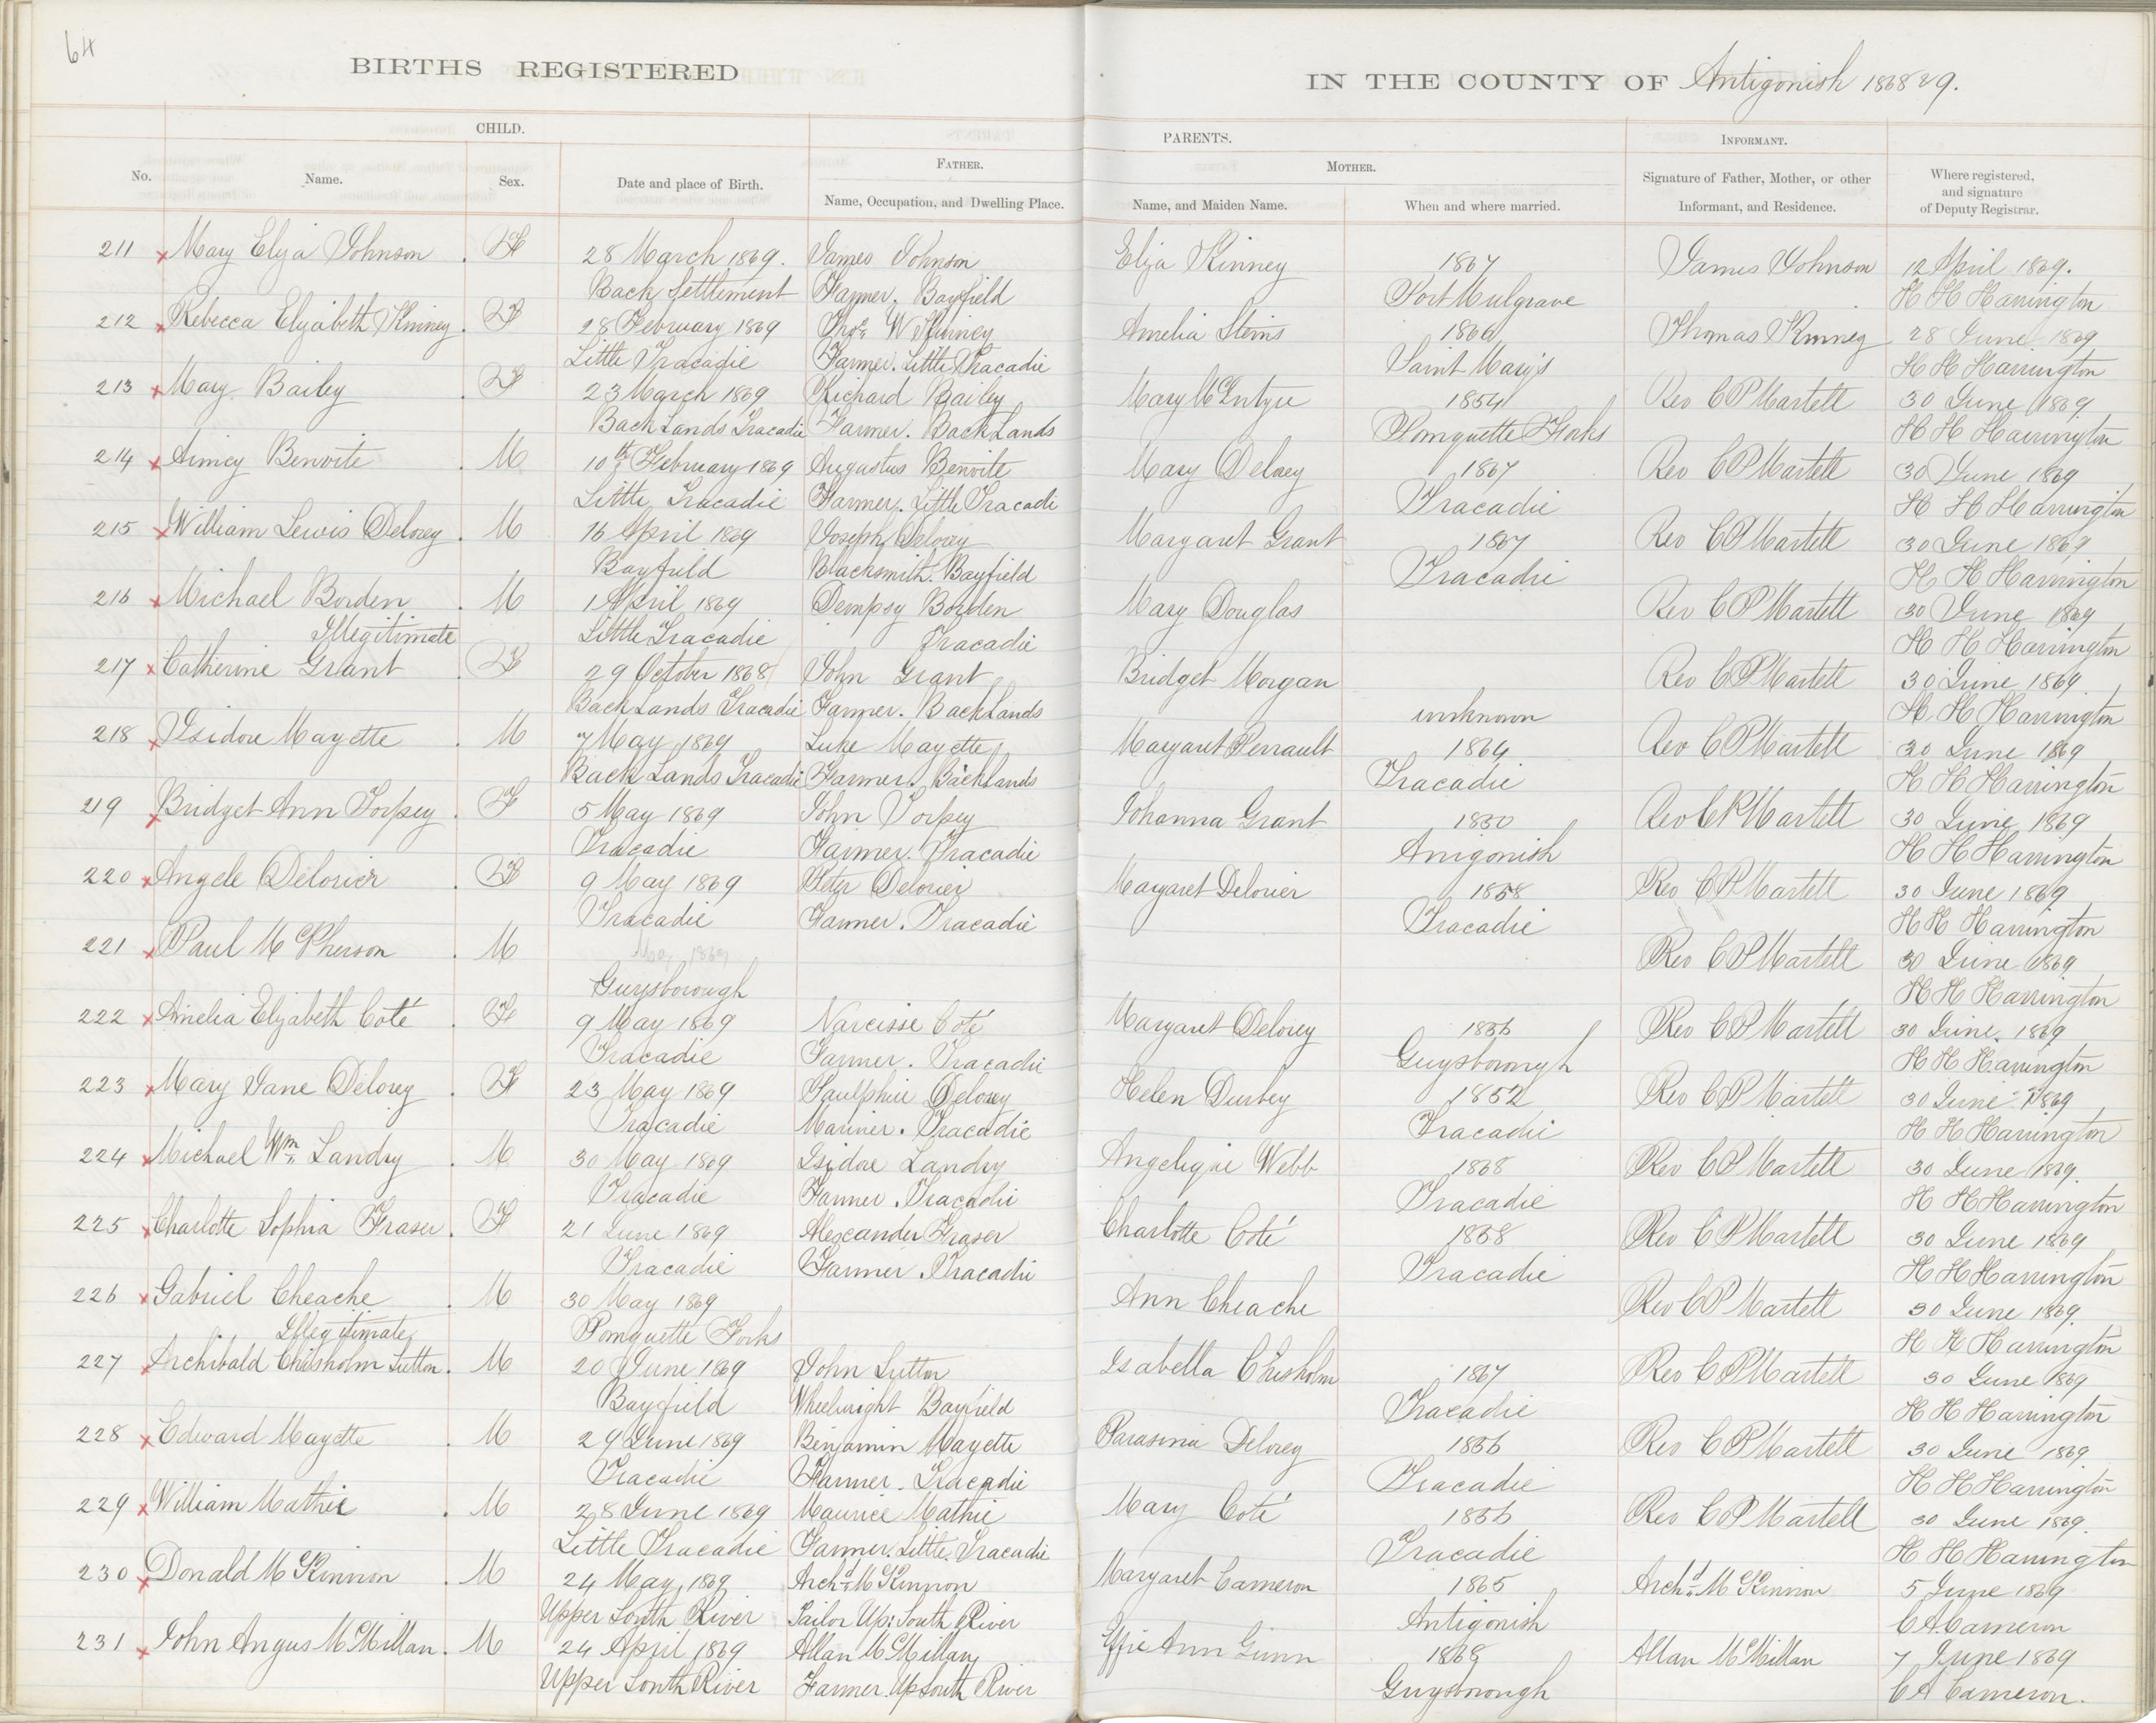 64
BIRTHS REGISTERED IN THE COUNTY OF Antigonish 1868 & 9.
CHILD. PARENTS. INFORMANT.
No. Name. Sex. Date and place of Birth. FATHER. Name, Occupation, and Dwelling Place. MOTHER. Name, and Maiden Name. When and where married. Signature of Father, Mother, or other Informant, and Residence. Where registered, and signature of Deputy Registrar.
211 x Mary Eliza Johnson . F 28 March 1869. James Johnson Eliza Kinney 1867 James Johnson 12 April 1869.
Back Settlement Farmer. Bayfield Port Mulgrave H H Harrington
212 x Rebecca Elizabeth Kinney . F 28 February 1869 Thos W Kinney Amelia 1866 Thomas Kinney 28 June 1869
Little Tracadie Farmer. Little Tracadie Saint Mary's H H Harrington
213 x Mary Bailey . F 23 March 1869 Richard Bailey Mary McIntyre 1854 Rev C P Martell 30 June 1869
Back Lands Tracadie Farmer. Back Lands Pomquette Forks H H Harrington
214 x Aimey Benvite . M 10th February 1869 Augustus Benvite Mary Delorey 1867 Rev C P Martell 30 June 1869
Little Tracadie Farmer. Little Tracadi Tracadie H H Harrington
215 x William Lewis Delorey . M 16 April 1869 Joseph Delorey Margaret Grant 1867 Rev C P Martell 30 June 1869
Bayfield Blacksmith. Bayfield Tracadie H H Harrington
216 x Michael Borden . M 1 April 1869 Dempsy Borden Mary Douglas Rev C P Martell 30 June 1869
Illegitimate Little Tracadie Tracadie H H Harrington
217 x Catherine Grant . F 29 October 1868 John Grant Bridget Morgan Rev C P Martell 30 June 1869
Back Lands Tracadie Farmer. Back Lands unknown H H Harrington
218 x Isidore Mayette . M 7 May 1869 Luke Mayette Margaret Perrault 1864 Rev C P Martell 30 June 1869
Back Lands Tracadie Farmer. Back Lands Tracadie H H Harrington
219 x Bridget Ann Torpey . F 5 May 1869 John Torpey Johanna Grant 1850 Rev C P Martell 30 June 1869
Tracadie Farmer. Tracadie Anigonish H H Harrington
220 x Angele Delorier . F 9 May 1869 Peter Delorier Margaret Delorier 1858 Rev C P Martell 30 June 1869
Tracadie Farmer. Tracadie Tracadie H H Harrington
221 x Paul McPherson . M May 1869 Rev C P Martell 30 June 1869
Guysborough H H Harrington
222 x Amelia Elizabeth Coté . F 9 May 1869 Narcisse Coté Margaret Delorey 1856 Rev C P Martell 30 June. 1869
Tracadie Farmer. Tracadie Guysborough H H Harrington
223 x Mary Jane Delorey . F 23 May 1869 Delorey Helen Durbey 1852 Rev C P Martell 30 June 1869
Tracadie Mariner. Tracadie Tracadie H H Harrington
224 x Michael Wm Landry . M 30 May 1869 Isidore Landry Angelique Webb 1868 Rev C P Martell 30 June 1869.
Tracadie Farmer. Tracadie Tracadie H H Harrington
225 x Charlotte Sophia Fraser . F 21 June 1869 Alexander Fraser Charlotte Coté 1858 Rev C P Martell 30 June 1869
Tracadie Farmer. Tracadie Tracadie H H Harrington
226 x Gabriel Cheache . M 30 May 1869 Ann Cheache Rev C P Martell 30 June 1869.
Illegitimate Pomquette Forks H H Harrington
227 x Archibald Chisholm Sutton . M 20 June 1869 John Sutton Isabella Chisholm 1867 Rev C P Martell 30 June 1869
Bayfield Wheelwright Bayfield Tracadie H H Harrington
228 x Edward Mayette . M 29 June 1869 Benjamin Mayette Parasina Delorey 1856 Rev C P Martell 30 June 1869
Tracadie Farmer. Tracadie Tracadie H H Harrington
229 x William Mathie . M 28 June 1869 Maurice Mathie Mary Coté 1856 Rev C P Martell 30 June 1869.
Little Tracadie Farmer. Little Tracadie Tracadie H H Harrington
230 x Donald McKinnon . M 24 May 1869 Archd McKinnon Margaret Cameron 1865 Archd McKinnon 5 June 1869
Upper South River Tailor Up: South River Antigonish C A Cameron
231 x John Angus McMillan . M 24 April 1869 Allan McMillan Effie Ann Ginn 1868 Allan McMillan 7 June 1869
Upper South River Farmer. Up South River Guysborough C A Cameron.